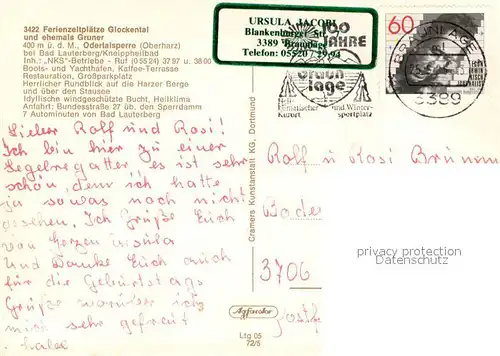 3422 Ferienzeltplätze Glockental
und ehemals Gruner
400 m ü. d. M., Odertalsperre (Oberharz)
bei Bad Lauterberg/Kneippheilbad
Inh.: „NKS"-Betriebe - Ruf (05524) 3797 u. 3800
Boots- und Yachthafen, Kaffee-Terrasse
Restauration, Großparkplatz
Herrlicher Rundblick auf die Harzer Berge
und über den Stausee
Idyllische windgeschützte Bucht, Heilklima
Anfahrt: Bundesstraße 27 üb. den Sperrdamm
7 Autominuten von Bad Lauterberg
Lieber Rolf und Rosi!
Ich bin hier zu einer
Segelregatter, es ist sehr
schön, denn ich hatte
ja sowas noch nicht
gesehen. Ich Grüße Euch
von Herzen Ursula
Und Danke Euch auch
für die Geburtstags
Grüße worüber ich
mich sehr gefreut
habe
URSULA JACOBI
Blankenburger St
3389 Braunlage
Telefon: 05520 /
100
JAHRE
braun
lage
Heil-
klimatischer
Kurort
und Winter-
sportplatz
60
BRAUNLAGE
3389
Cramers Kunstanstalt KG, Dortmund
Rolf u Rosi
3706
privacy protected
Datenschutz
Agfacolor
Ltg 05
72/5